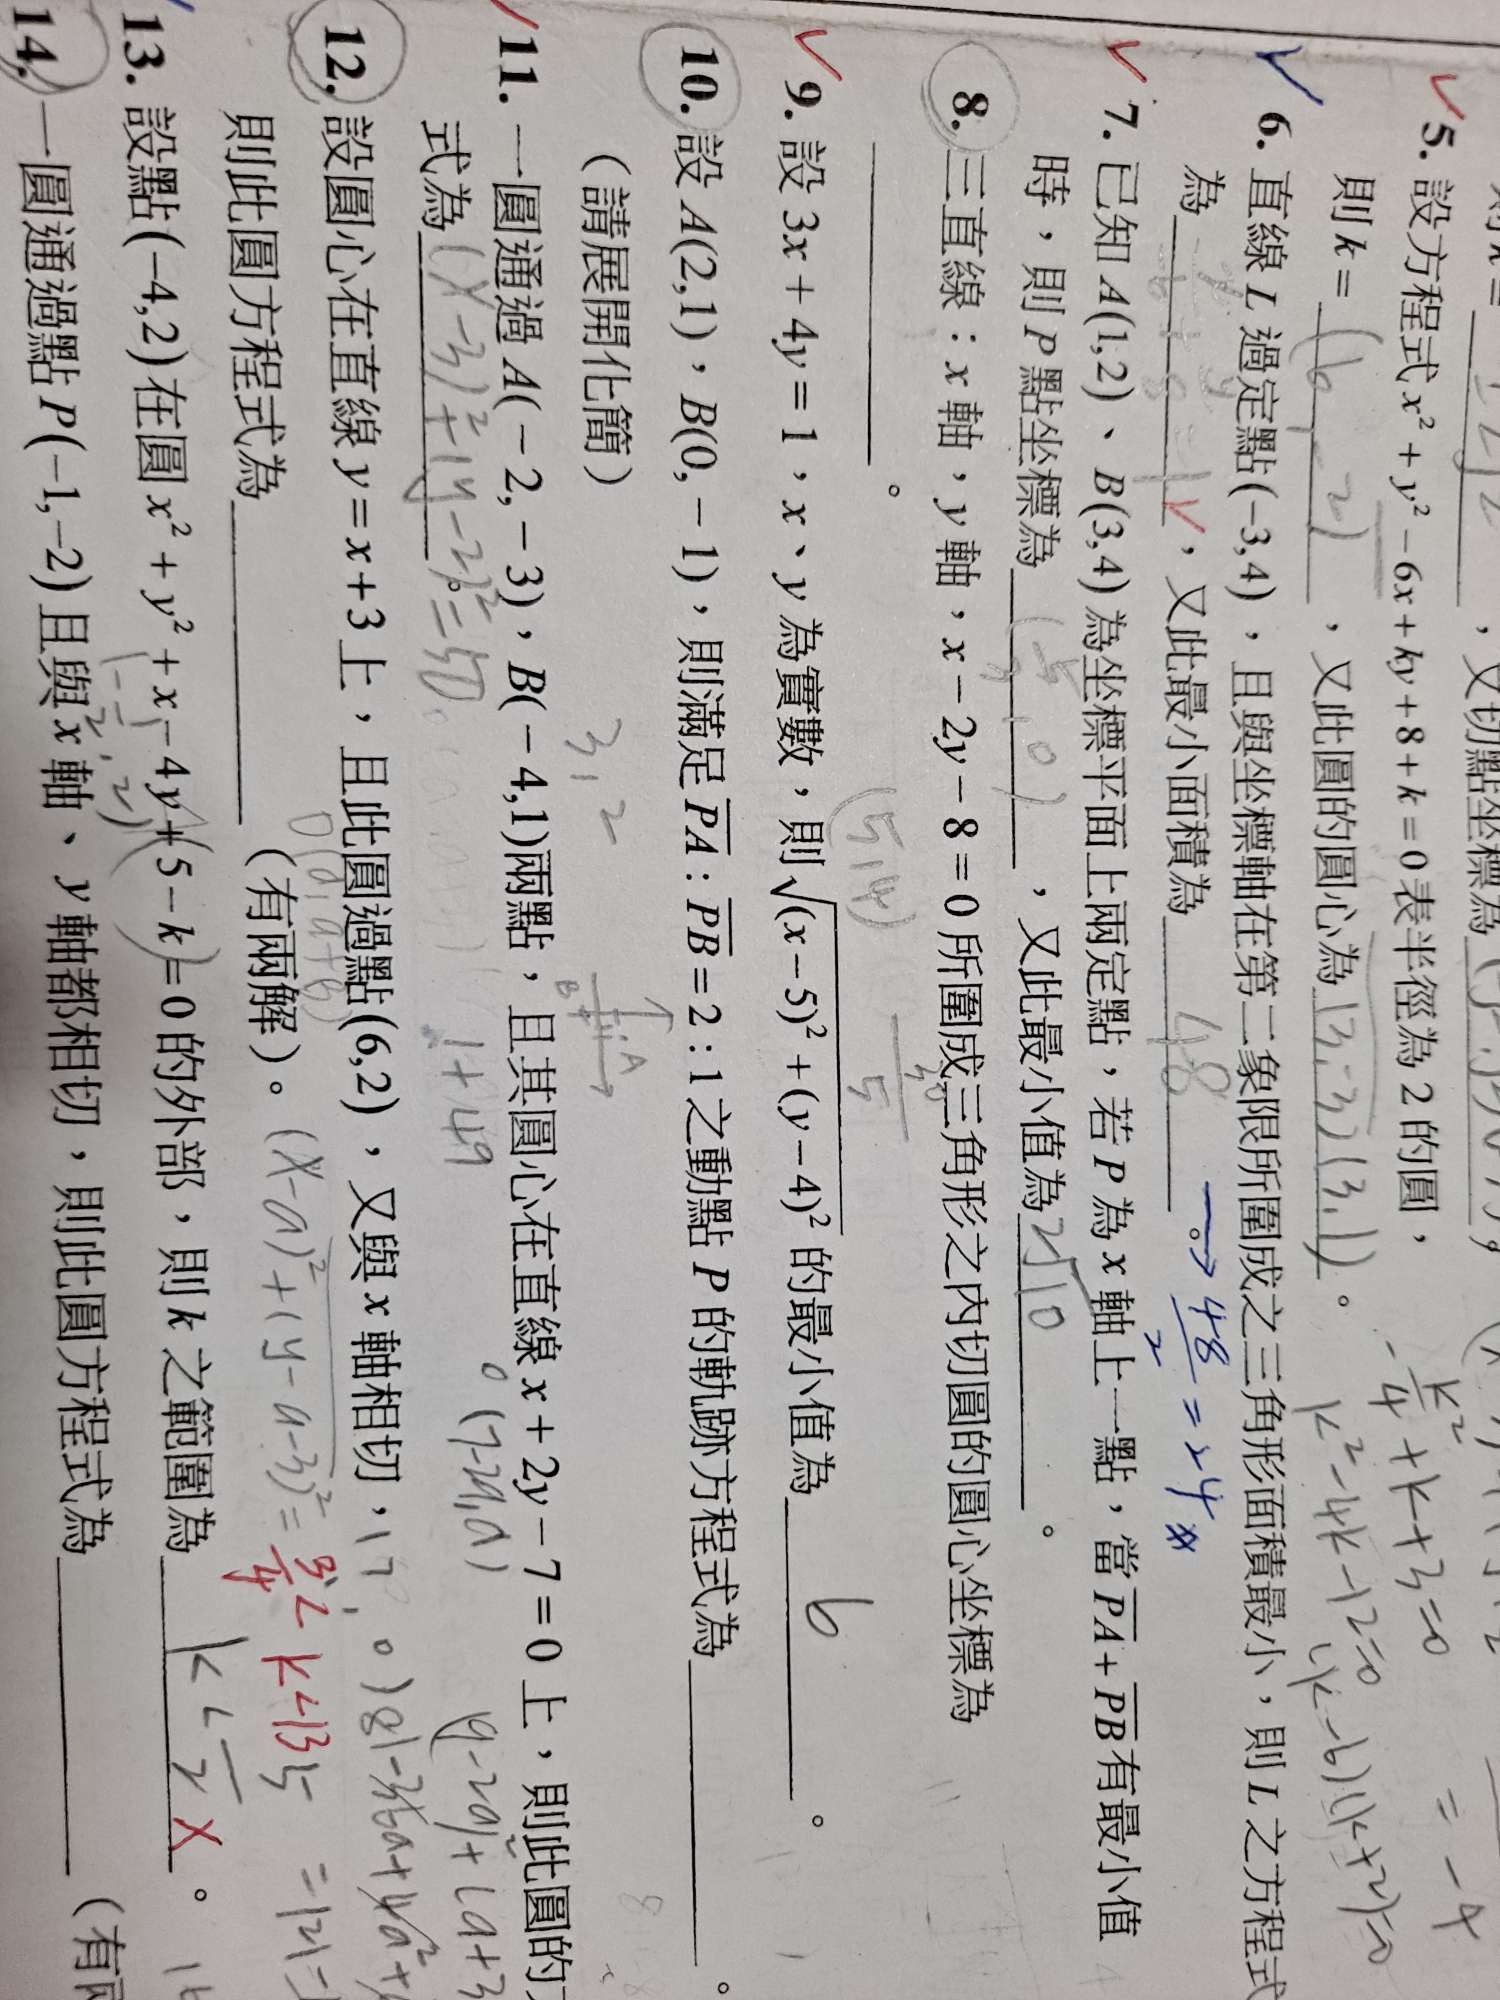 5. 設方程式 x² + y² − 6x + ky + 8 + k = 0 表半徑為 2 的圓，
則 k = (6, -2) ，又此圓的圓心為 (3, -3) (3, 1) 。
6. 直線 L 過定點 (−3,4)，且與坐標軸在第二象限所圍成之三角形面積最小，則 L 之方程式
為 ，又此最小面積為 48 。→ 48/2 = 24
7. 已知 A(1,2)、B(3,4) 為坐標平面上兩定點，若 P 為 x 軸上一點，當 PA + PB 有最小值
時，則 P 點坐標為 (5/3, 0) ，又此最小值為 2√10 。
8. 三直線：x 軸，y 軸，x − 2y − 8 = 0 所圍成三角形之內切圓的圓心坐標為
。
9. 設 3x + 4y = 1，x、y 為實數，則 √(x − 5)² + (y − 4)² 的最小值為 6 。
(5, 4)
30/5
10. 設 A(2,1)，B(0, −1)，則滿足 PA : PB = 2 : 1 之動點 P 的軌跡方程式為 。
（請展開化簡）
11. 一圓通過 A( −2, −3)，B( −4,1) 兩點，且其圓心在直線 x + 2y − 7 = 0 上，則此圓的
式為 (x-3)² + (y-2)² = 50
1+49
(7-2a, a)
12. 設圓心在直線 y = x + 3 上，且此圓過點 (6,2)，又與 x 軸相切，
則此圓方程式為 （有兩解）。
(x-a)² + (y-a-3)² =
13. 設點 (−4,2) 在圓 x² + y² + x − 4y + 5 − k = 0 的外部，則 k 之範圍為 。
14. 一圓通過點 P(−1,−2) 且與 x 軸、y 軸都相切，則此圓方程式為 （有
-k²/4 + k + 3 = 0
k² - 4k - 12 = 0
(k-6)(k+2) = 0